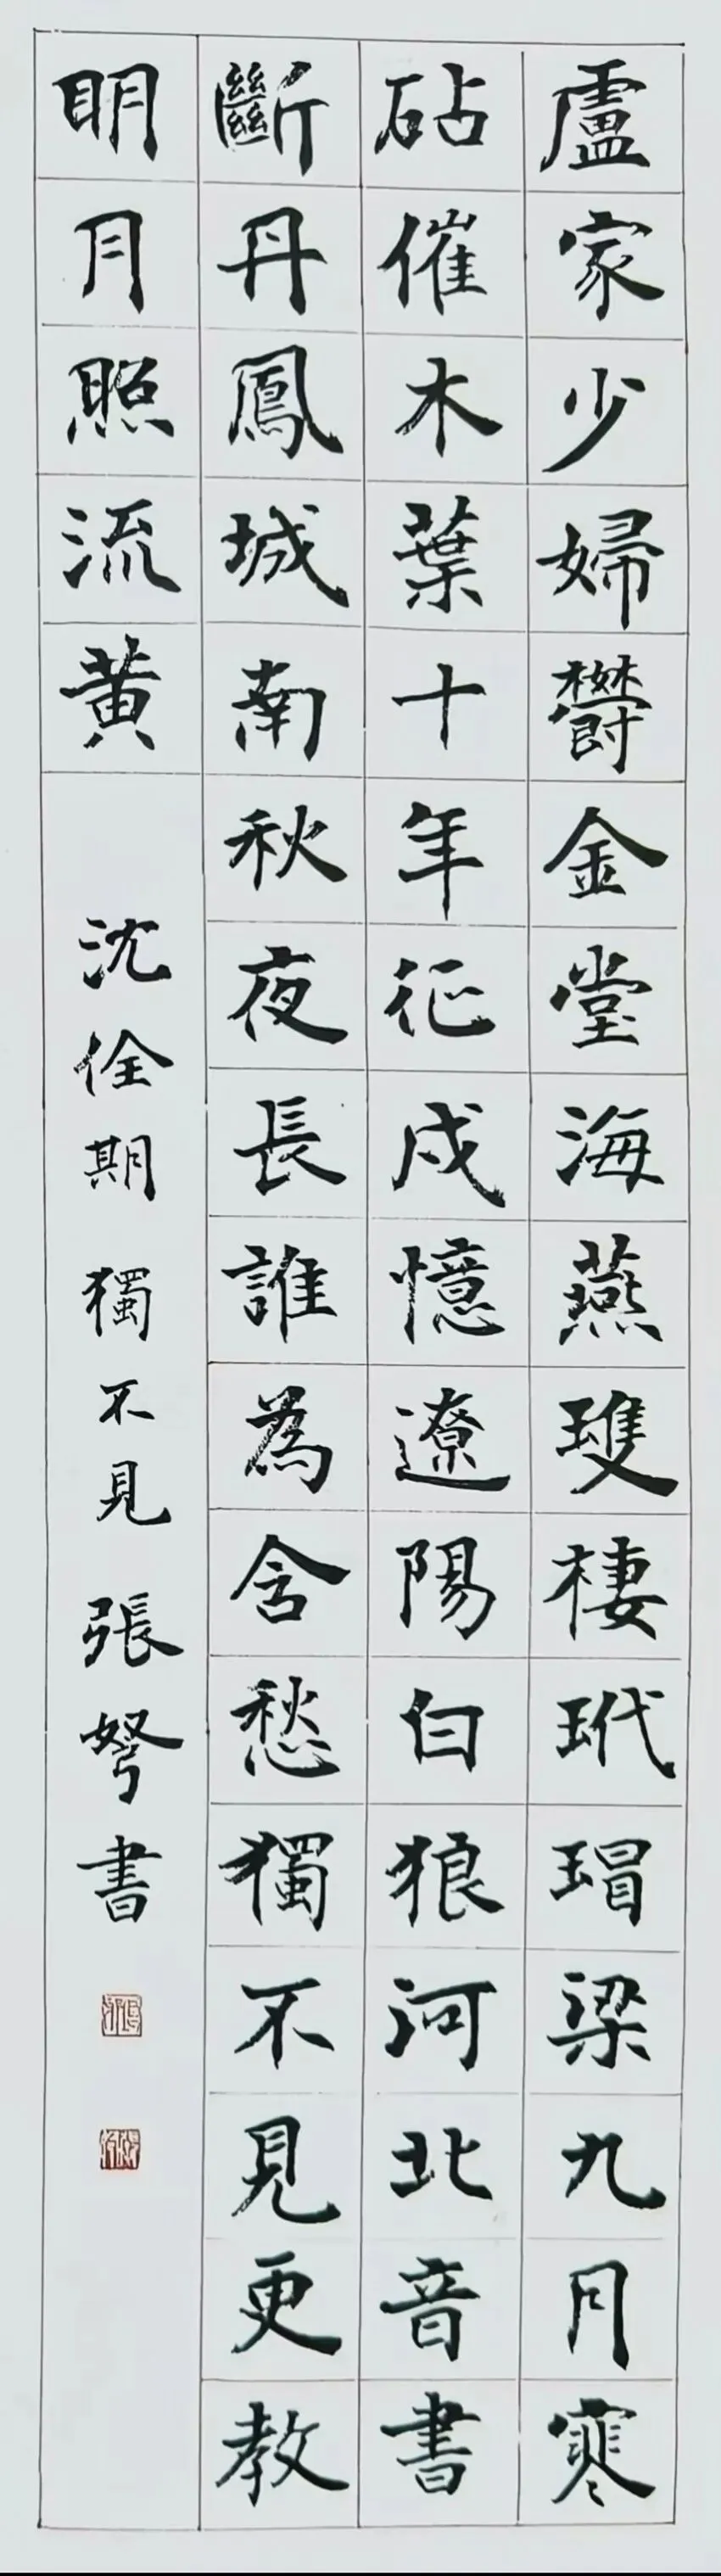 盧家少婦欝金堂海燕雙棲玳瑁梁九月寒
砧催木葉十年征戍憶遼陽白狼河北音書
斷丹鳳城南秋夜長誰為含愁獨不見更教
明月照流黄 沈佺期 獨不見 張弩書